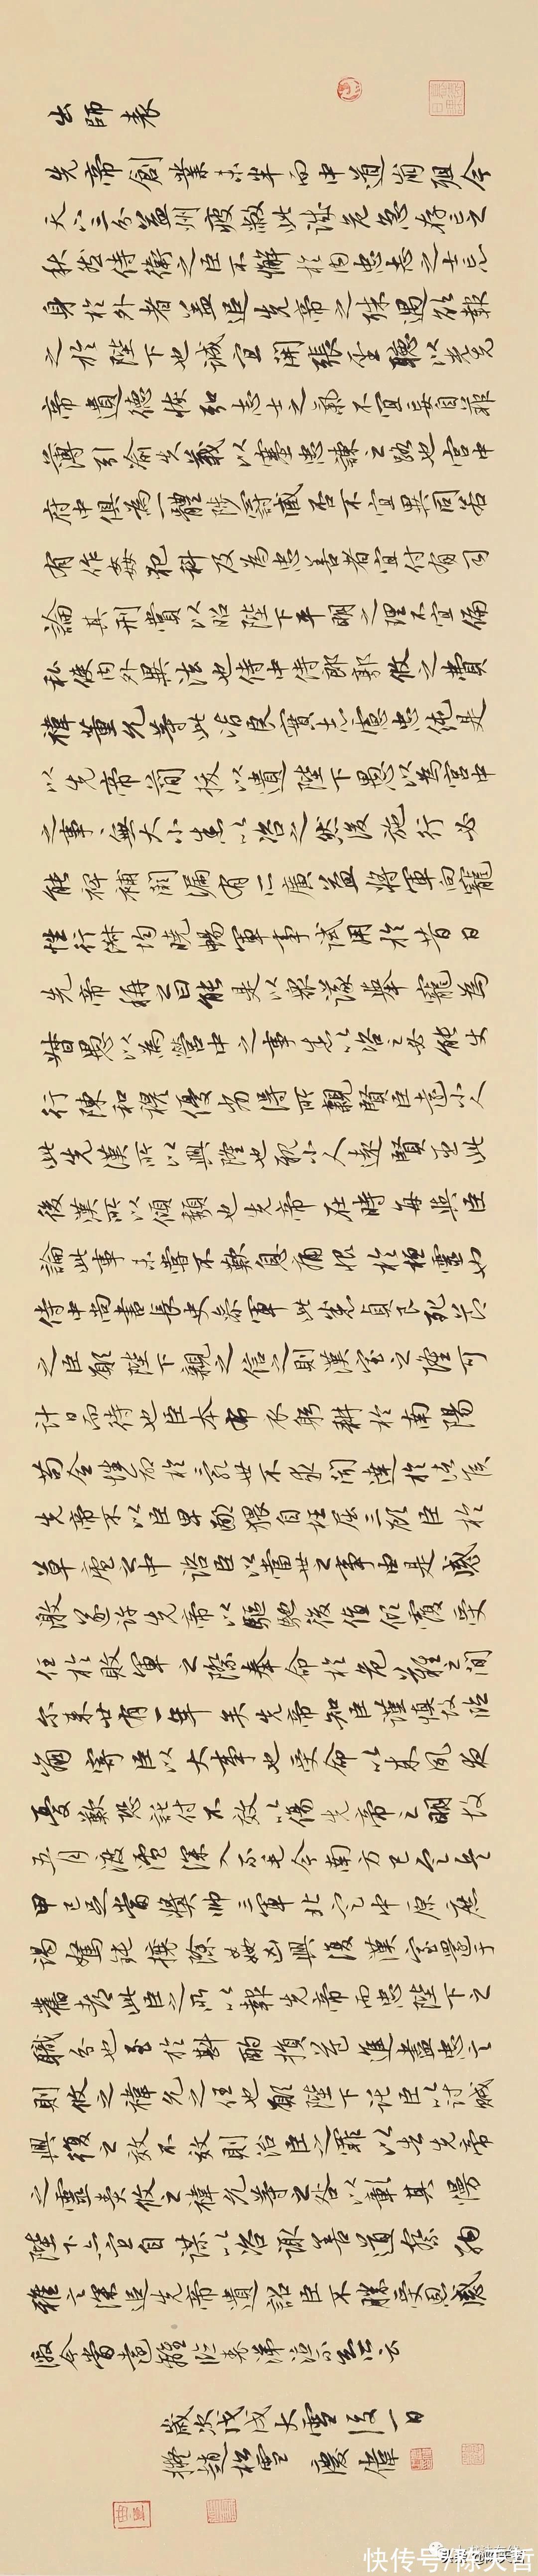 出師表
先帝創業未半而中道崩殂今
天下三分益州疲敝此誠危急存亡之
秋然侍衛之臣不懈於内忠志之士忘
身於外者蓋追先帝之殊遇欲報
之於陛下也誠宜開張聖聽以光先
帝遺德恢弘志士之氣不宜妄自菲
薄引喻失義以塞忠諫之路也宮中
府中俱為一體陟罰臧否不宜異同若
有作姦犯科及為忠善者宜付有司
論其刑賞以昭陛下平明之理不宜偏
私使内外異法也侍中侍郎郭攸之費
禕董允等此皆良實志慮忠純是
以先帝簡拔以遺陛下愚以為宮中
之事事無大小悉以咨之然後施行必
能裨補闕漏有所廣益將軍向寵
性行淑均曉暢軍事試用於昔日
先帝稱之曰能是以眾議舉寵為
督愚以為營中之事悉以咨之必能使
行陳和穆優劣得所親賢臣遠小人
此先漢所以興隆也親小人遠賢臣此
後漢所以傾頹也先帝在時每與臣
論此事未嘗不歎息痛恨於桓靈也
侍中尚書長史參軍此悉貞良死節
之臣願陛下親之信之則漢室之隆可
計日而待也臣本布衣躬耕於南陽
苟全性命於亂世不求聞達於諸侯
先帝不以臣卑鄙猥自枉屈三顧臣於
草廬之中諮臣以當世之事由是感
激遂許先帝以驅馳後值傾覆受
任於敗軍之際奉命於危難之間
爾來廿有一年矣先帝知臣謹慎故臨
崩寄臣以大事也受命以來夙夜
憂歎恐託付不效以傷先帝之明故
五月渡瀘深入不毛今南方已定兵
甲已足當獎帥三軍北定中原庶
竭駑鈍攘除姦凶興復漢室還于
舊都此臣之所以報先帝而忠陛下之
職分也至於斟酌損益進盡忠言
則攸之禕允之任也願陛下託臣以討賊
興復之效不效則治臣之罪以告先帝
之靈責攸之禕允等之咎以彰其慢
陛下亦宜自謀以咨諏善道察納
雅言深追先帝遺詔臣不勝受恩感
激今當遠離臨表涕泣不知所云
歲次戊戌大雪後一日
擬趙松雪 慶偉
快传号/陈天哲